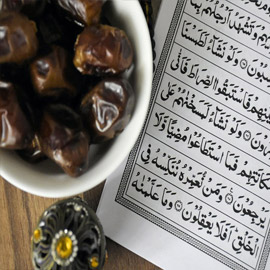 وَتَشْهَدُ أَرْجُلُهُمْ بِمَا
وَلَوْ نَشَاءُ لَطَمَسْنَا
فَاسْتَبَقُوا الصِّرَاطَ فَأَنَّى
وَلَوْ نَشَاءُ لَمَسَخْنَاهُمْ عَلَى
فَمَا اسْتَطَاعُوا مُضِيًّا وَلَا
يَرْجِعُونَ ۝ وَمَنْ نُعَمِّرْهُ نُنَكِّسْهُ فِي
الْخَلْقِ أَفَلَا يَعْقِلُونَ ۝ وَمَا عَلَّمْنَاهُ